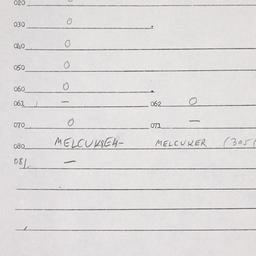 020
030 0
040 0
050 0
060 0
061 — 062 0
070 0 071 —
080 MELCUKER (305)
081 —